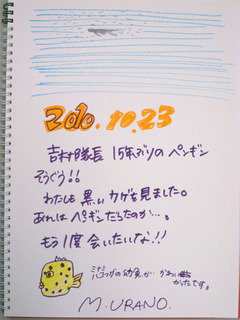 2010.10.23
吉村隊長 15年ぶりの ペンギン
そうぐう!!
わたしも 黒い カゲを見ました。
あれは ペンギンだったのか…。
もう1度 会いたいな!!
ミナミ
ハコフグの幼魚が かわいかったです。
M.URANO.